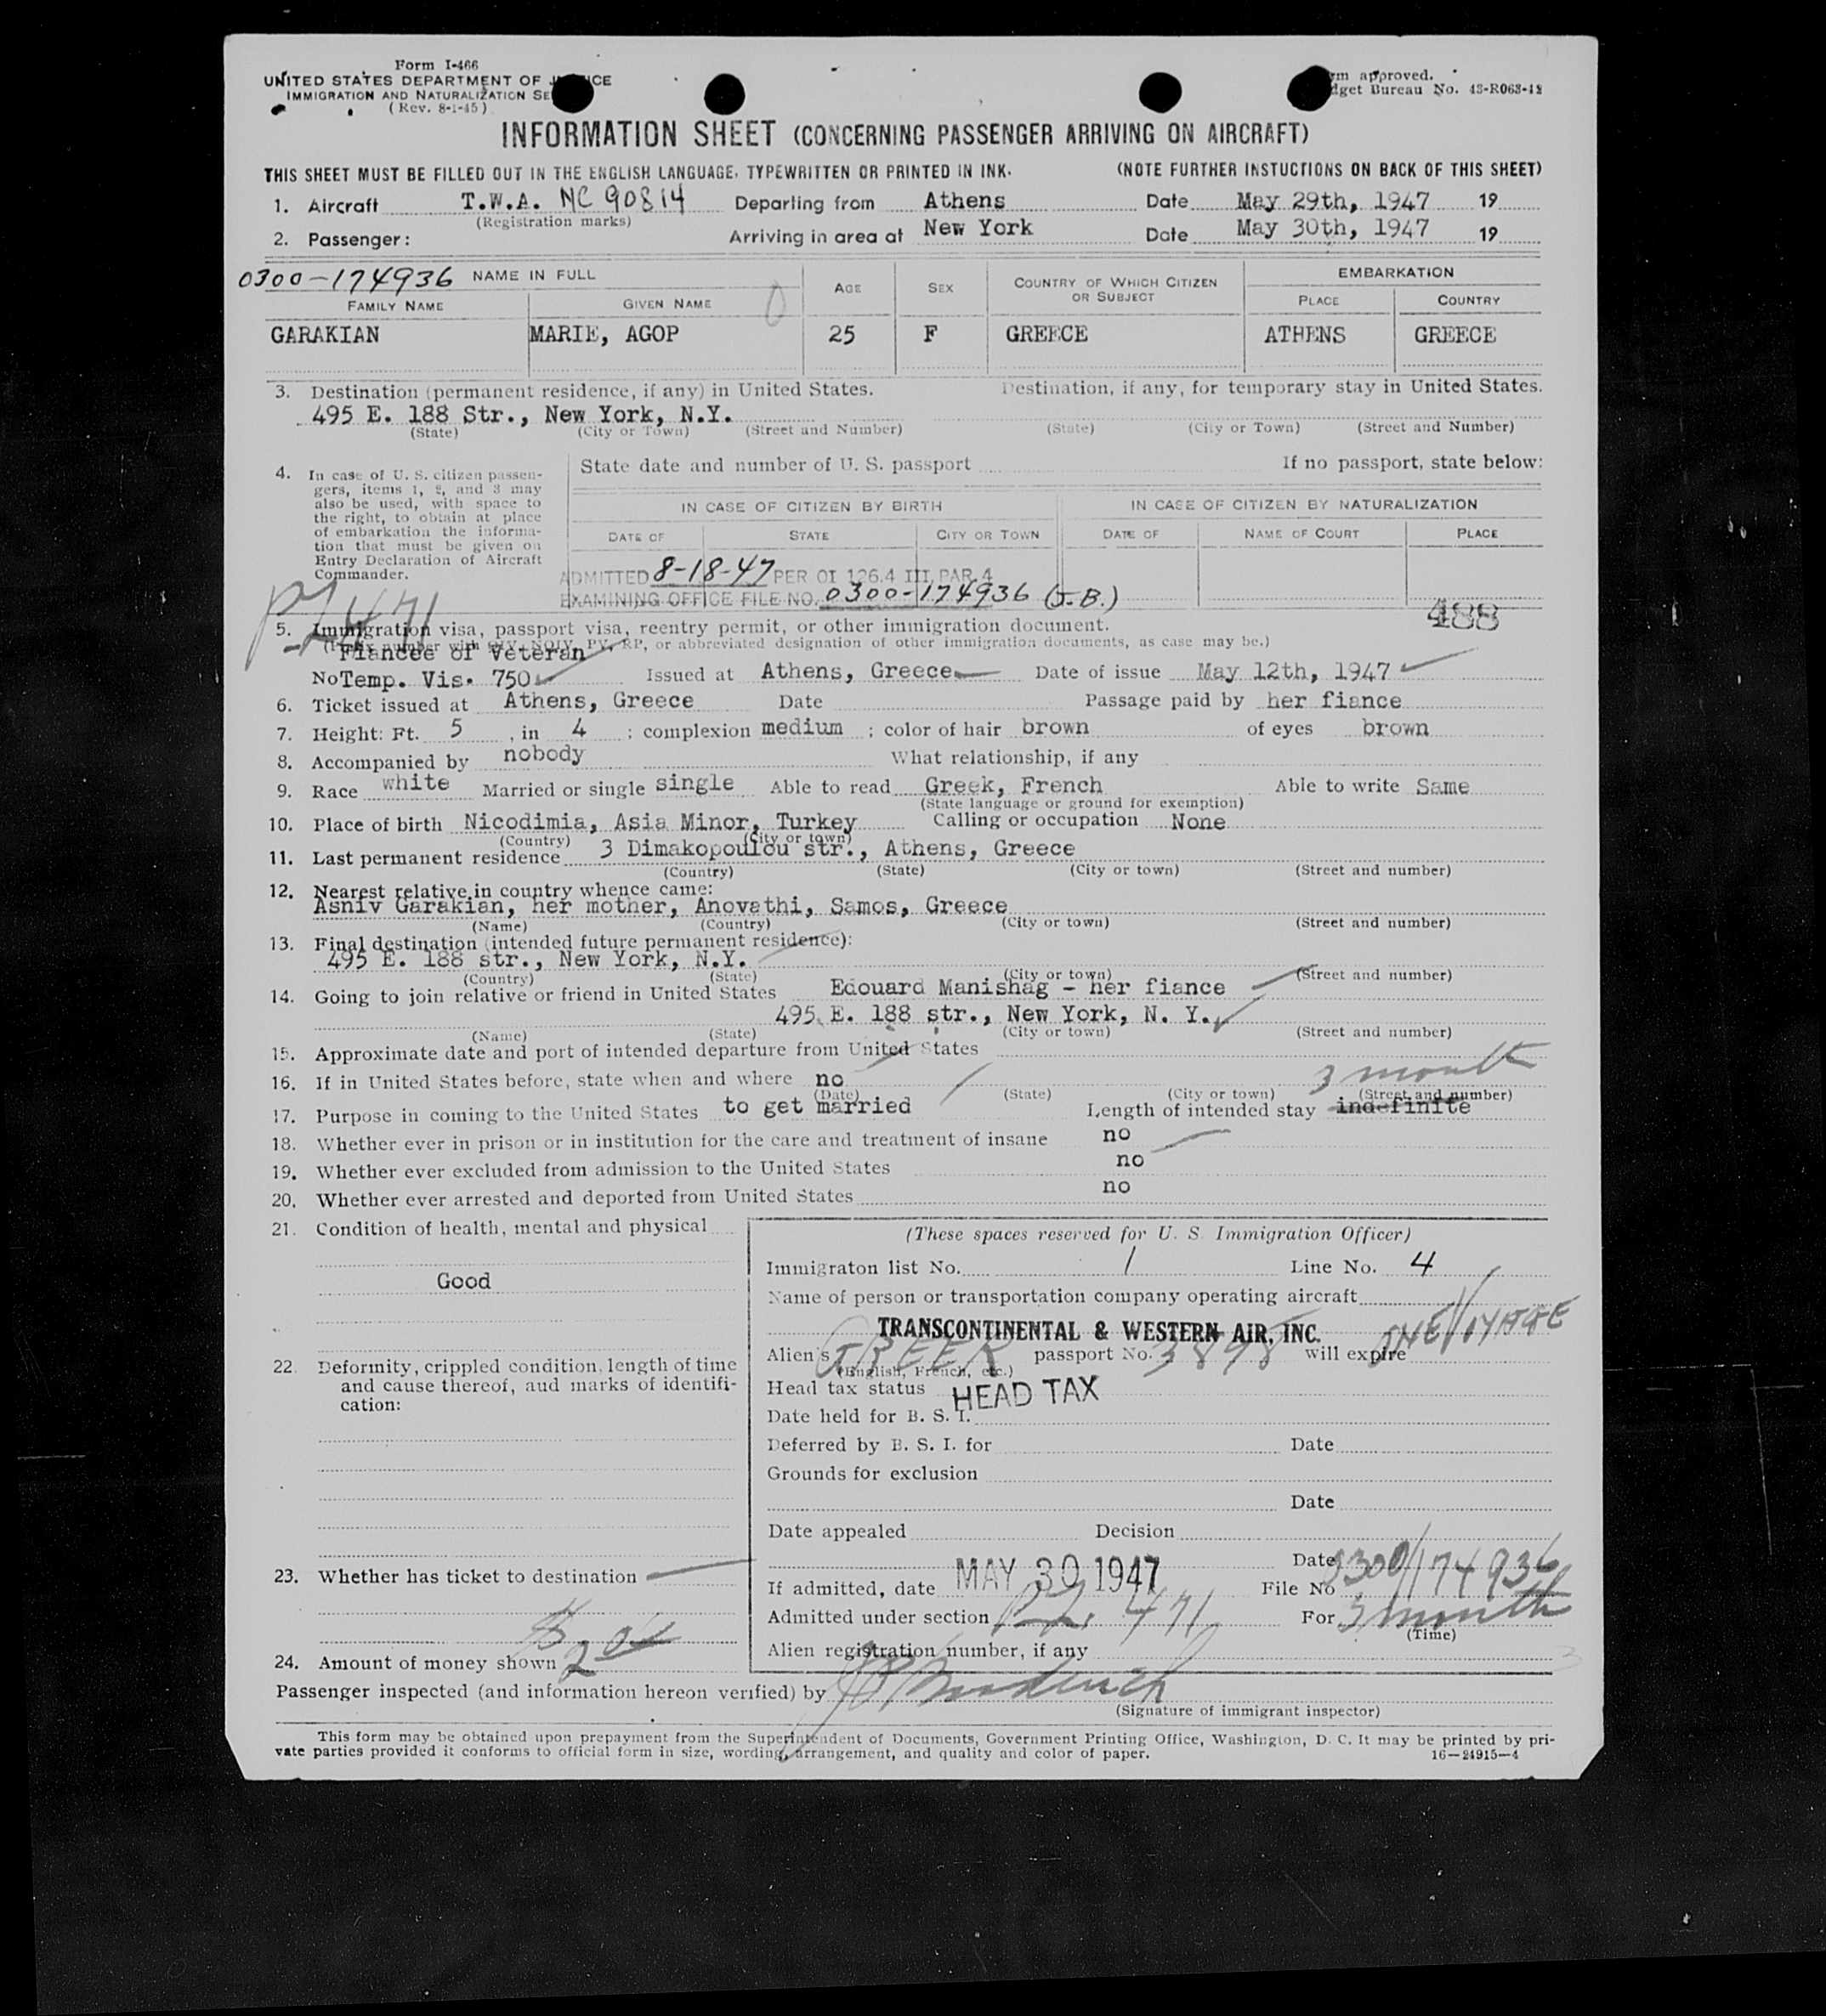 Form I-466
UNITED STATES DEPARTMENT OF J ICE
IMMIGRATION AND NATURALIZATION SE
(Rev. 8-1-45)
m approved.
dget Bureau No. 43-R063-42
INFORMATION SHEET (CONCERNING PASSENGER ARRIVING ON AIRCRAFT)
THIS SHEET MUST BE FILLED OUT IN THE ENGLISH LANGUAGE, TYPEWRITTEN OR PRINTED IN INK. (NOTE FURTHER INSTUCTIONS ON BACK OF THIS SHEET)
1. Aircraft T.W.A. NC 90814 Departing from Athens Date May 29th, 1947 19
(Registration marks)
2. Passenger: Arriving in area at New York Date May 30th, 1947 19
0300-174936 NAME IN FULL AGE SEX COUNTRY OF WHICH CITIZEN OR SUBJECT EMBARKATION
FAMILY NAME GIVEN NAME PLACE COUNTRY
GARAKIAN MARIE, AGOP 25 F GREECE ATHENS GREECE
3. Destination (permanent residence, if any) in United States. Destination, if any, for temporary stay in United States.
495 E. 188 Str., New York, N.Y.
(State) (City or Town) (Street and Number) (State) (City or Town) (Street and Number)
4. In case of U. S. citizen passengers, items 1, 2, and 3 may also be used, with space to the right, to obtain at place of embarkation the information that must be given on Entry Declaration of Aircraft Commander.
State date and number of U. S. passport If no passport, state below:
IN CASE OF CITIZEN BY BIRTH IN CASE OF CITIZEN BY NATURALIZATION
DATE OF STATE CITY OR TOWN DATE OF NAME OF COURT PLACE
ADMITTED 8-18-47 PER OI 126.4 III, PAR. 4
EXAMINING OFFICE FILE NO. 0300-174936 (J.B.)
PL 471
488
5. Immigration visa, passport visa, reentry permit, or other immigration document.
(Prefix number with QIV, NQIV, PV, RP, or abbreviated designation of other immigration documents, as case may be.)
Fiancee of Veteran
No Temp. Vis. 750 Issued at Athens, Greece Date of issue May 12th, 1947
6. Ticket issued at Athens, Greece Date Passage paid by her fiance
7. Height: Ft. 5, in 4; complexion medium; color of hair brown of eyes brown
8. Accompanied by nobody What relationship, if any
9. Race white Married or single single Able to read Greek, French Able to write Same
(State language or ground for exemption)
10. Place of birth Nicodimia, Asia Minor, Turkey Calling or occupation None
(Country) (City or town)
11. Last permanent residence 3 Dimakopoulou str., Athens, Greece
(Country) (State) (City or town) (Street and number)
12. Nearest relative in country whence came:
Asniv Garakian, her mother, Anovathi, Samos, Greece
(Name) (Country) (City or town) (Street and number)
13. Final destination (intended future permanent residence):
495 E. 188 str., New York, N.Y.
(Country) (State) (City or town) (Street and number)
14. Going to join relative or friend in United States Edouard Manishag - her fiance
495 E. 188 str., New York, N. Y.
(Name) (State) (City or town) (Street and number)
15. Approximate date and port of intended departure from United States
16. If in United States before, state when and where no 3 month
(Date) (State) (City or town) (Street and number)
17. Purpose in coming to the United States to get married Length of intended stay indefinite
18. Whether ever in prison or in institution for the care and treatment of insane no
19. Whether ever excluded from admission to the United States no
20. Whether ever arrested and deported from United States no
21. Condition of health, mental and physical
Good
22. Deformity, crippled condition, length of time and cause thereof, and marks of identification:
23. Whether has ticket to destination
24. Amount of money shown
(These spaces reserved for U. S. Immigration Officer)
Immigraton list No. 1 Line No. 4
Name of person or transportation company operating aircraft
TRANSCONTINENTAL & WESTERN AIR, INC.
Alien's GREEK passport No. 3898 will expire ONE VOYAGE
(English, French, etc.)
Head tax status HEAD TAX
Date held for B. S. I.
Deferred by B. S. I. for Date
Grounds for exclusion
Date
Date appealed Decision
Date
If admitted, date MAY 30 1947 File No 0300/174936
Admitted under section PL 471 For 3 month
(Time)
Alien registration number, if any
Passenger inspected (and information hereon verified) by
(Signature of immigrant inspector)
This form may be obtained upon prepayment from the Superintendent of Documents, Government Printing Office, Washington, D. C. It may be printed by pri-
vate parties provided it conforms to official form in size, wording, arrangement, and quality and color of paper. 16—24915—4